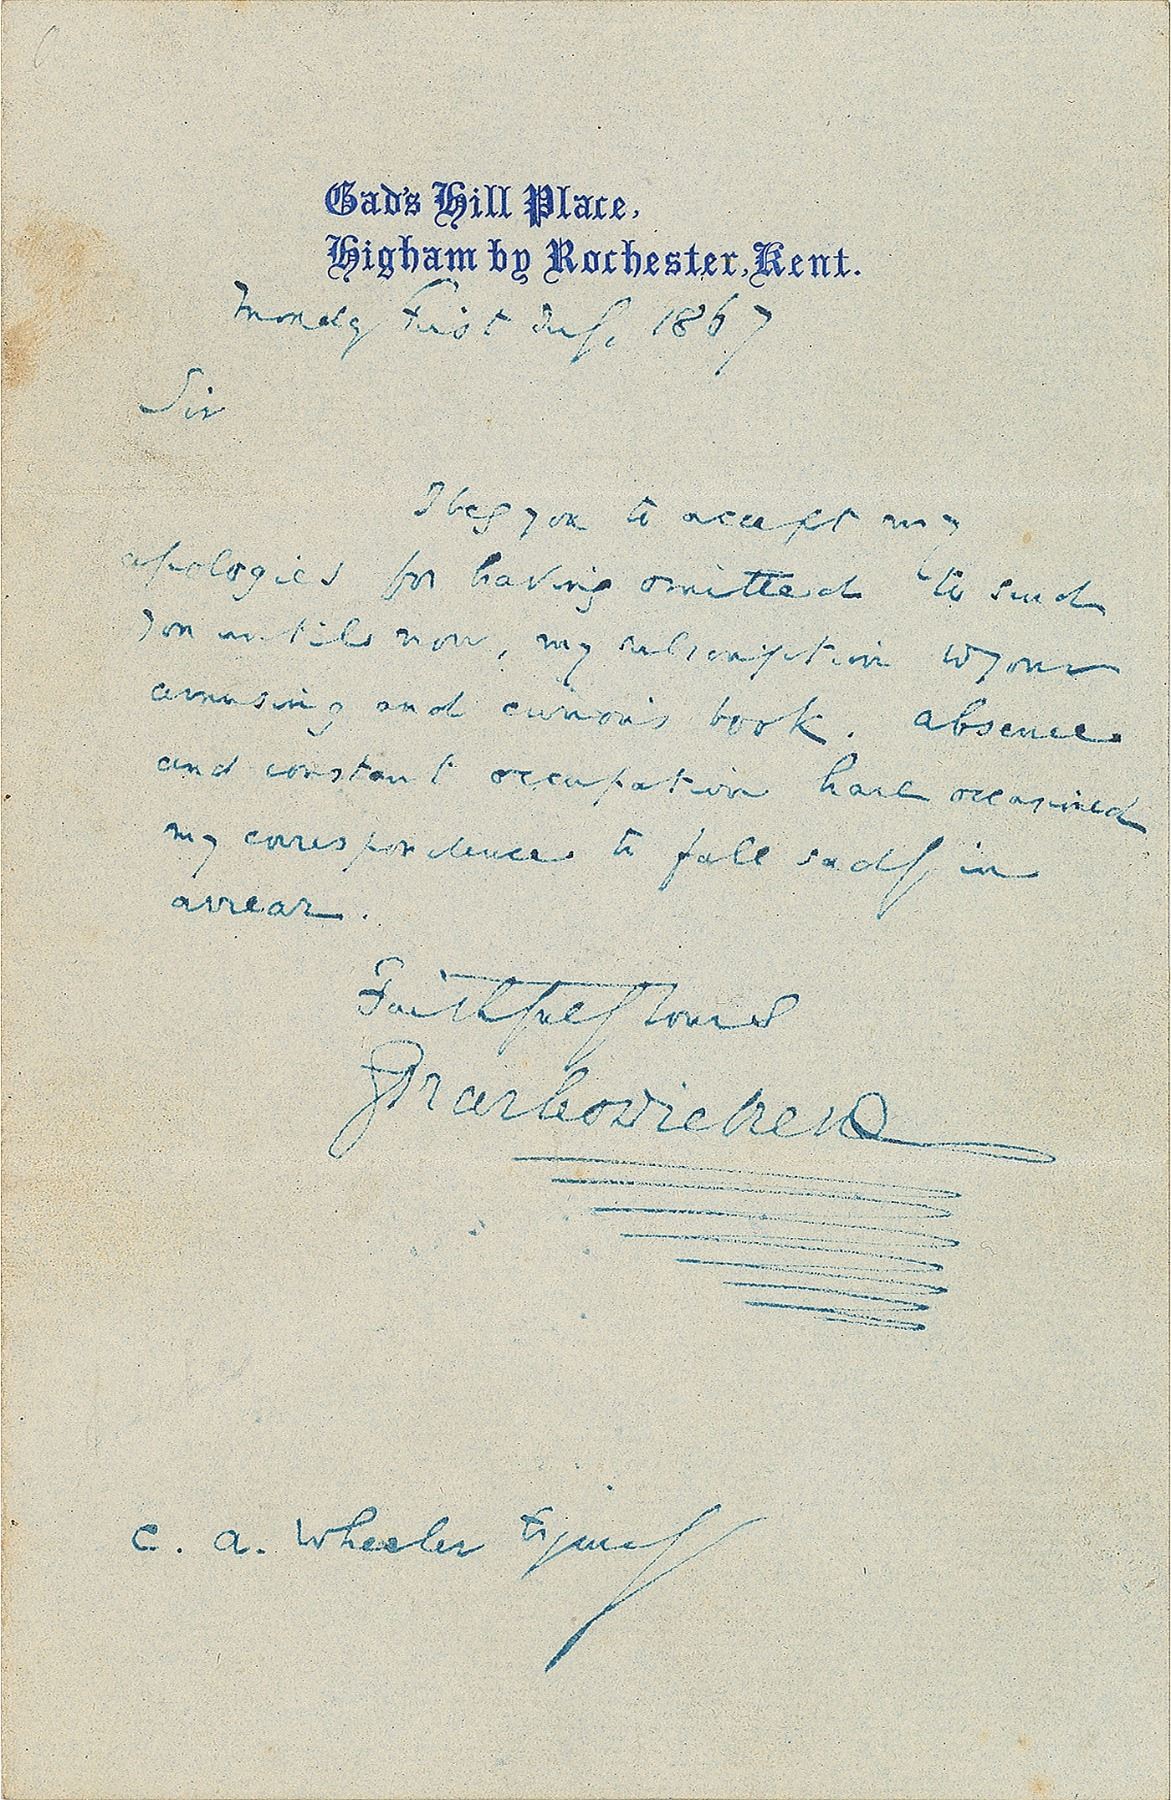 Gad's Hill Place,
Higham by Rochester, Kent.
Monday First July, 1867
Sir
I beg you to accept my
apologies for having omitted to send
you until now, my subscription to your
amusing and curious book. Absence
and constant occupation have occasioned
my correspondence to fall sadly in
arrear.
Faithfully Yours
Charles Dickens
C. A. Wheeler Esquire